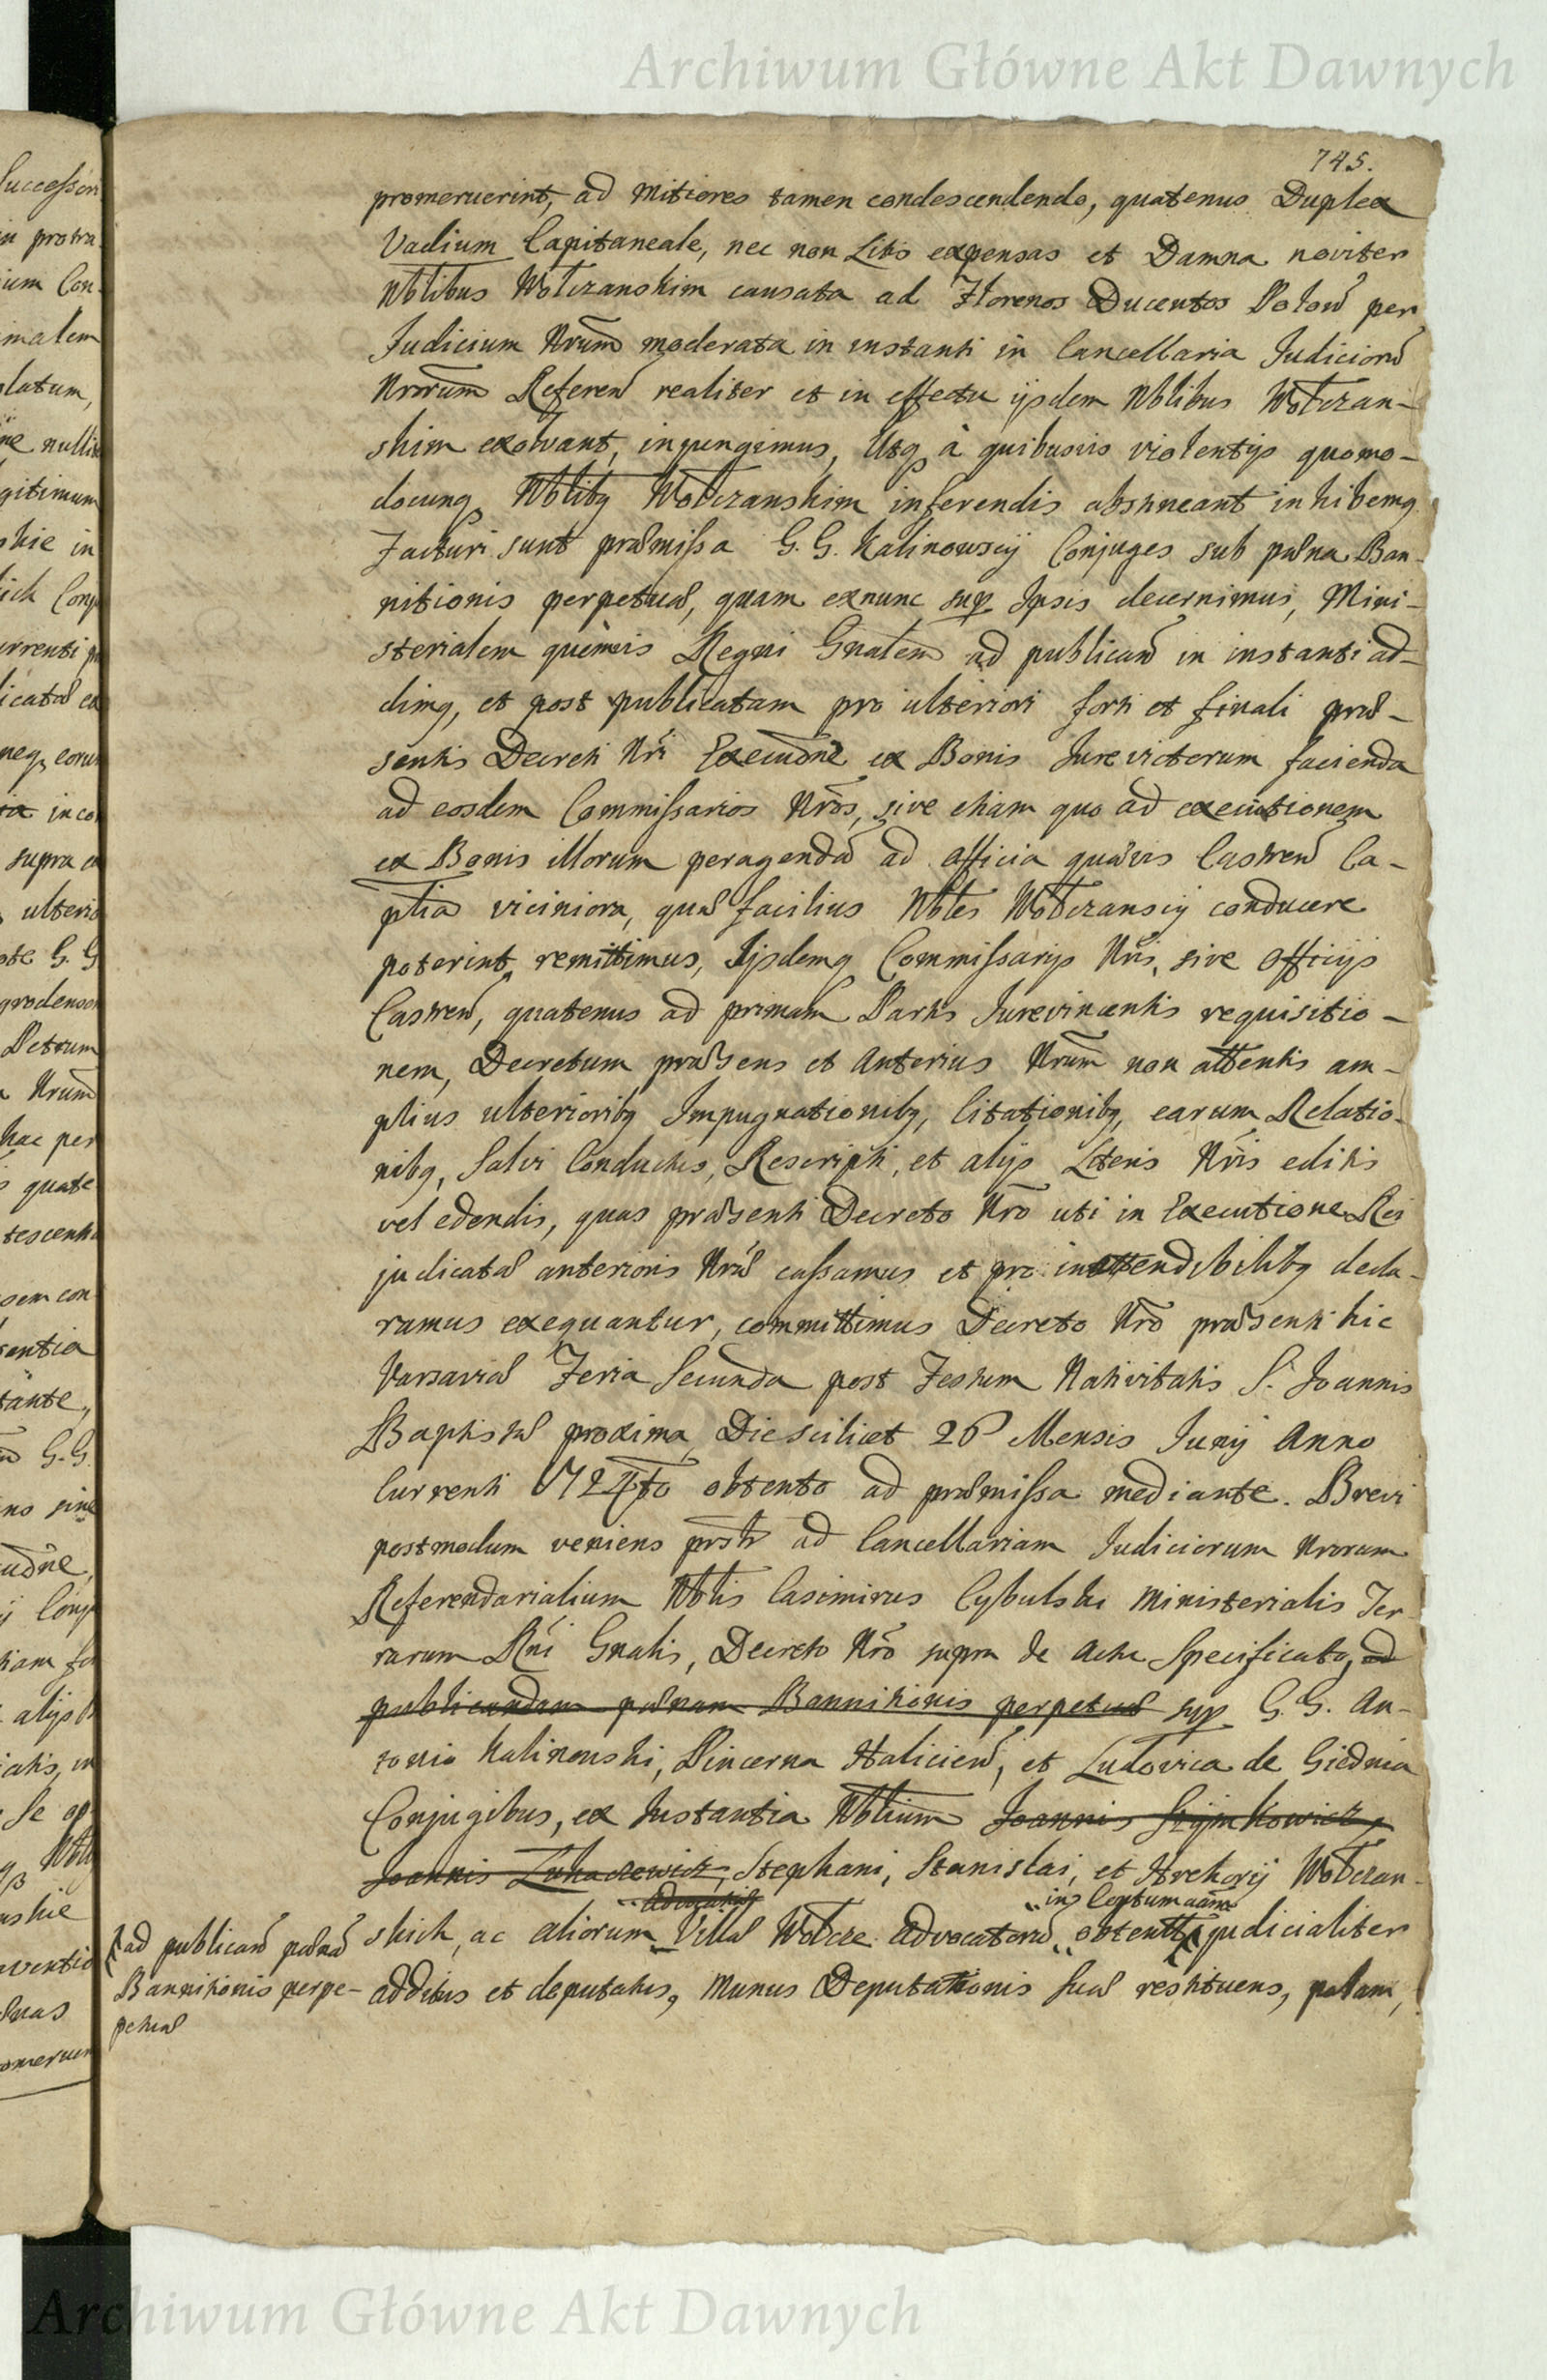 Archiwum Główne Akt Dawnych
745.
promeruerint, ad mitiores tamen condescendendo, quatenus Duplex
Vadium Capitaneale, nec non Litis expensas et Damna noviter
Nblibus Wołczanskim causata ad Florenos Ducentos Polon per
Judicium Nrum moderata in instanti in Cancellaria Judicioru
Nrorum Referen realiter et in effectu ijsdem Nblibus Wołczan-
skim exolvant, injungimus, Utq à quibusvis violentijs quomo-
docunq Nblibq Wołczanskim inferendis abstineant inhibemq
Facturi sunt præmissa G. G. Kalinowscij Conjuges sub pæna Ban-
nitionis perpetuæ, quam exnunc sup Ipsis decernimus, Mini-
sterialem quemvis Regni Gnalem ad publican in instanti ad-
dimq, et post publicatam pro ulteriori forti et finali præ-
sentis Decreti Nri Execudne ex Bonis Jurevictorum facienda
ad eosdem Commissarios Nros, sive etiam quo ad executionem
ex Bonis illorum peragenda ad Officia quævis Castren Ca-
plia viciniora, quæ facilius Nbles Wołczanscij conducere
poterint remittimus, Ijsdemq Commissarijs Nris, sive Officijs
Castren, quatenus ad primam Partis Jurevincentis requisitio-
nem, Decretum præsens et anterius Nrum non attentis am-
plius ulterioribq Impugnationibq, Citationibq, earum Relatio-
nibq, Salvi Conductus, Rescripti, et alijs Literis Nris editis
vel edendis, quas præsenti Decreto Nro uti in Executione Rei
judicatæ anterioris Nræ cassamus et pro inattendibilibq decla-
ramus exequantur, committimus Decreto Nro præsenti hic
Varsaviæ Feria Secunda post Festum Nativitatis S. Joannis
Baptistæ proxima, Die scilicet 26 Mensis Junij Anno
Currenti 1724to obtento ad præmissa mediante. Brevi
postmodum veniens prstr ad Cancellariam Judiciorum Nrorum
Referendarialium Nblis Casimirus Cybulski Ministerialis Ter-
rarum Rni Gnalis, Decreto Nro supra de Actu Specificato, ad
publicandam pænam Bannitionis perpetuæ sup G. G. An-
tonio Kalinouski, Pincerna Halicien, et Ludovica de Giednia
Conjugibus, ex Instantia Nblium Joannis Szymkowicz,
Joannis Lukaszewicz, Stephani, Stanislai, et Hrehorij Wołczan-
Advocatis
in Contum aāme
skich, ac aliorum Villæ Wołcze Advocatoru obtento judicialiter
additus et deputatus, munus Deputationis suæ restituens, palam,
ad publican pæna
Bannitionis perpe-
petuæ
Archiwum Główne Akt Dawnych